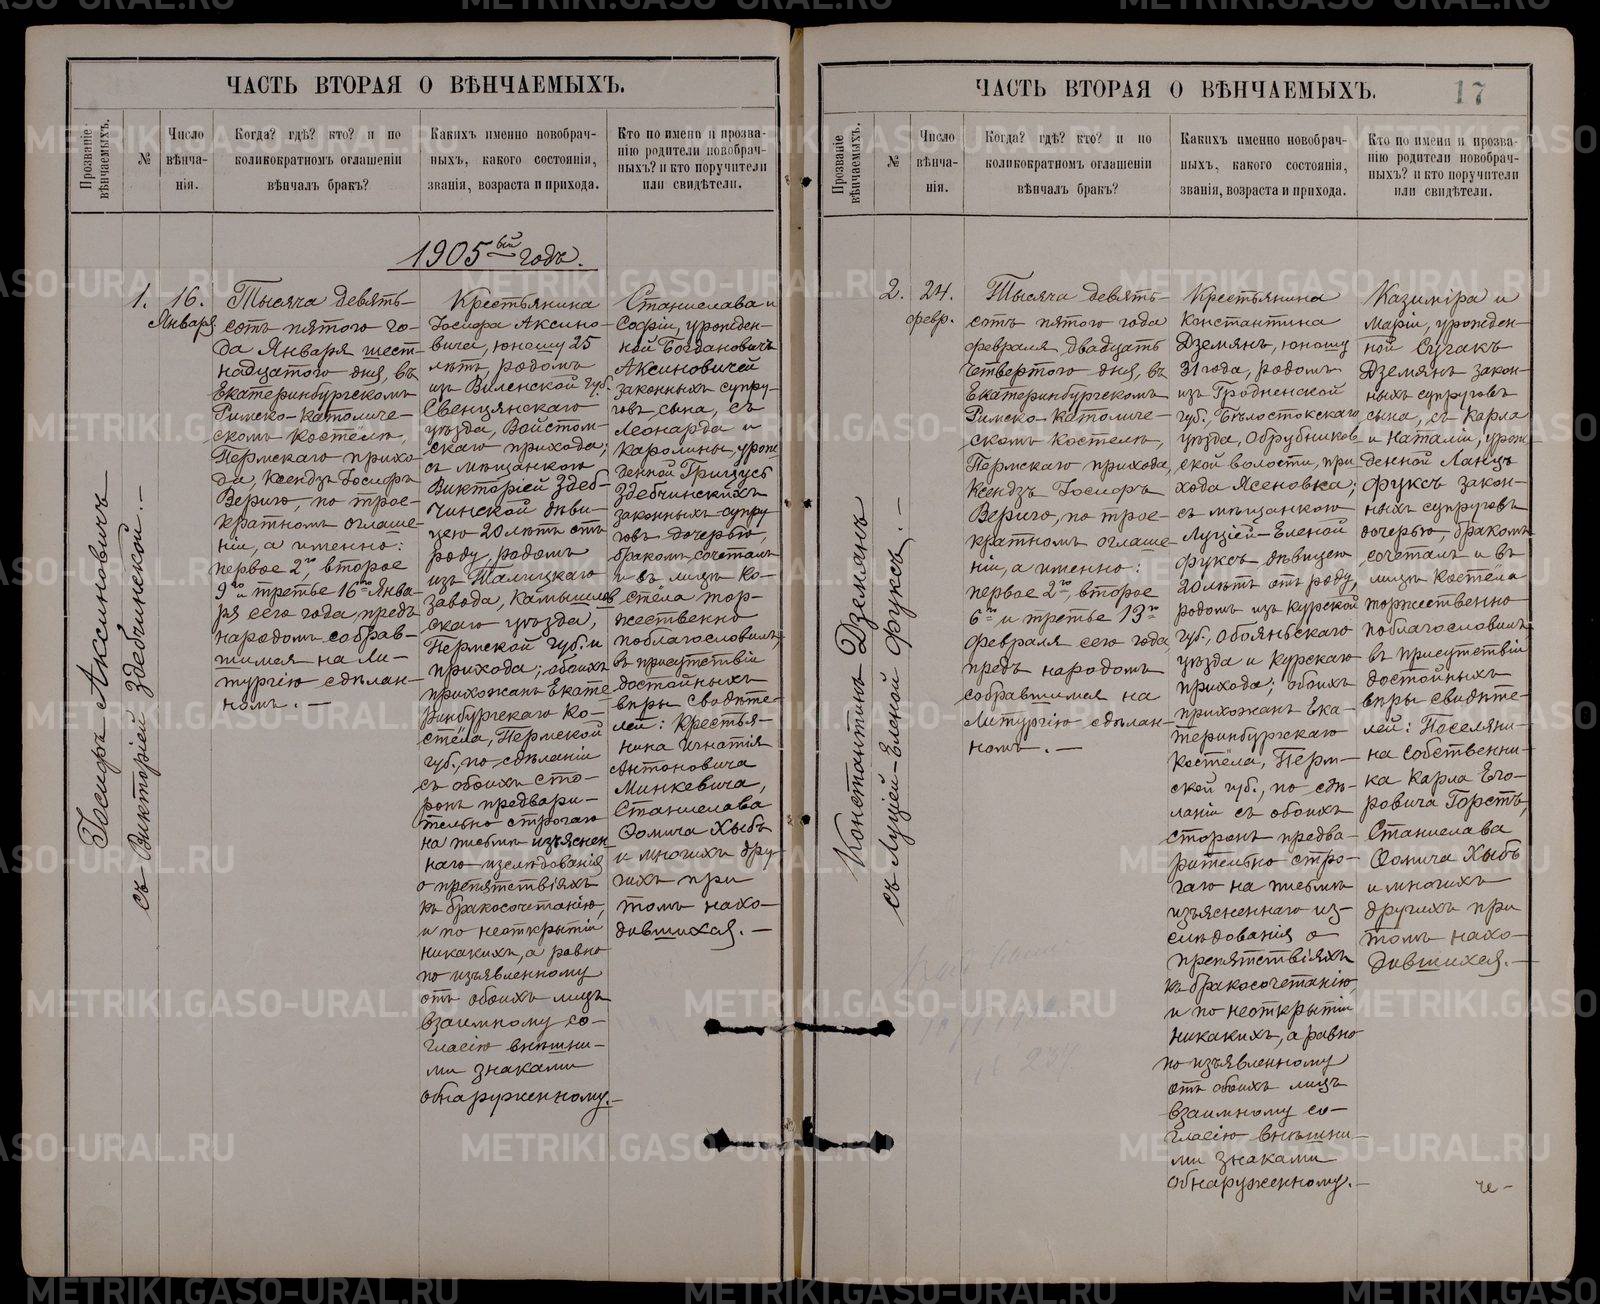 ЧАСТЬ ВТОРАЯ О ВѢНЧАЕМЫХЪ.
Прозваніе
вѣнчаемыхъ.
№
Число
вѣнча-
нія.
Когда? гдѣ? кто? и по
коликократномъ оглашеніи
вѣнчалъ бракъ?
Какихъ именно новобрач-
ныхъ, какого состоянія,
званія, возраста и прихода.
Кто по имени и прозва-
нію родители новобрач-
ныхъ? и кто поручители
или свидѣтели.
1905ый годъ.
Іосифъ Аксиновичъ
съ Викторіей Здебчинской.—
1.
16.
Января
Тысяча девять-
сотъ пятого го-
да Января шест-
надцатого дня, въ
Екатеринбургскомъ
Римско-католиче-
скомъ костёлѣ,
Пермскаго прихо-
да, Ксендзъ Іосифъ
Вериго, по трое-
кратномъ оглаше-
ніи, а именно:
первое 2го, второе
9го и третье 16го Янва-
ря сего года предъ
народомъ собрав-
шимся на Ли-
тургію сдѣлан-
номъ.—
Крестьянина
Іосифа Аксино-
вича, юношу 25
лѣтъ, родомъ
изъ Виленской губ.
Свенцянскаго
уѣзда, Войстом-
скаго прихода;
съ мѣщанкою
Викторіей Здеб-
чинской дѣви-
цею 20 лѣтъ отъ
роду, родомъ
изъ Талицкаго
завода, Камышлов
скаго уѣзда,
Пермской губ. и
прихода; обоихъ
прихожанъ Екате-
ринбургскаго Ко-
стёла, Пермской
губ., по сдѣланіи
съ обоихъ сто-
ронъ предвари-
тельно строгаго
на письмѣ изъяснен-
наго изслѣдованія
о препятствіяхъ
къ бракосочетанію,
и по неоткрытіи
никакихъ, а равно
по изъявленному
отъ обоихъ лицъ
взаимному со-
гласію внѣшни-
ми знаками
обнаруженному.—
Станислава и
Софіи, урожден-
ной Богдановичъ
Аксиновичей
законныхъ супру-
говъ сына, съ
Леонарда и
Каролины, урож-
денной Грицусъ
Здебчинскихъ
законныхъ супру-
говъ дочерью,
бракомъ сочеталъ
и въ лицѣ ко-
стёла тор-
жественно
поблагословилъ,
въ присутствіи
достойныхъ
вѣры свидѣте-
лей: Крестья-
нина Игнатія
Антоновича
Минкевича,
Станислава
Ѳомича Хыбъ
и многихъ дру-
гихъ при
томъ нахо-
дившихся.—
ЧАСТЬ ВТОРАЯ О ВѢНЧАЕМЫХЪ.
17
Прозваніе
вѣнчаемыхъ.
№
Число
вѣнча-
нія.
Когда? гдѣ? кто? и по
коликократномъ оглашеніи
вѣнчалъ бракъ?
Какихъ именно новобрач-
ныхъ, какого состоянія,
званія, возраста и прихода.
Кто по имени и прозва-
нію родители новобрач-
ныхъ? и кто поручители
или свидѣтели.
Константинъ Дземянъ
съ Луціей-Еленой Фуксъ.—
2.
24.
февр.
Тысяча девять-
сотъ пятого года
февраля двадцать
четвертого дня, въ
Екатеринбургскомъ
Римско-католиче-
скомъ костёлѣ,
Пермскаго прихода,
Ксендзъ Іосифъ
Вериго, по трое-
кратномъ оглаше-
ніи, а именно:
первое 2го, второе
6го и третье 13го
февраля сего года
предъ народомъ
собравшимся на
Литургію сдѣлан-
номъ.—
Крестьянина
Константина
Дземянъ, юношу
31 года, родомъ
изъ Гродненской
губ. Бѣлостокскаго
уѣзда, Обрубников
ской волости, при
хода Ясеновка;
съ мѣщанкою
Луціей-Еленой
Фуксъ дѣвицею
20 лѣтъ отъ роду,
родомъ изъ Курской
губ., Обояньскаго
уѣзда и Курскаго
прихода; обоихъ
прихожанъ Ека-
теринбургскаго
Костёла, Перм-
ской губ., по сдѣ-
ланіи съ обоихъ
сторонъ предва-
рительно стро-
гаго на письмѣ
изъясненнаго из-
слѣдованія о
препятствіяхъ
къ бракосочетанію,
и по неоткрытіи
никакихъ, а равно
по изъявленному
отъ обоихъ лицъ
взаимному со-
гласію внѣшни-
ми знаками
обнаруженному.—
Казиміра и
Маріи, урожден-
ной Сугакъ
Дземянъ закон-
ныхъ супруговъ
сына, съ Карла
и Наталіи, урож
денной Ланцъ
Фуксъ закон-
ныхъ супруговъ
дочерью, бракомъ
сочеталъ и въ
лицѣ костёла
торжественно
поблагословилъ
въ присутствіи
достойныхъ
вѣры свидѣте-
лей: Поселяни-
на Собственни-
ка Карла Его-
ровича Горстъ,
Станислава
Ѳомича Хыбъ
и многихъ
другихъ при
томъ нахо-
дившихся.—
че-
METRIKI.GASO-URAL.RU